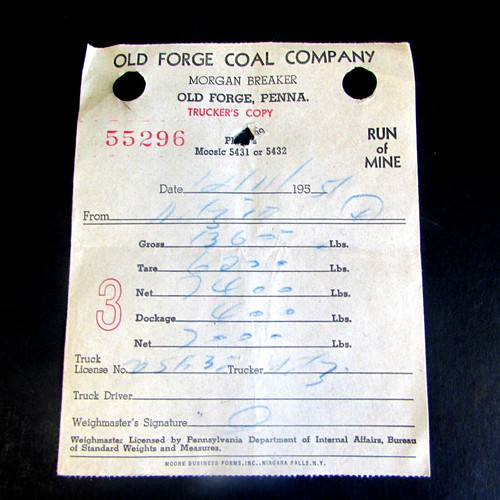 OLD FORGE COAL COMPANY
MORGAN BREAKER
OLD FORGE, PENNA.
TRUCKER'S COPY
55296
Moosic 5431 or 5432
RUN
of
MINE
Date 195
From
Gross 13600 Lbs.
Tare 6200 Lbs.
Net 7400 Lbs.
3
Dockage 400 Lbs.
Net 7000 Lbs.
Truck
License No. Trucker
Truck Driver
Weighmaster's Signature
Weighmaster Licensed by Pennsylvania Department of Internal Affairs, Bureau
of Standard Weights and Measures.
MOORE BUSINESS FORMS, INC., NIAGARA FALLS, N.Y.